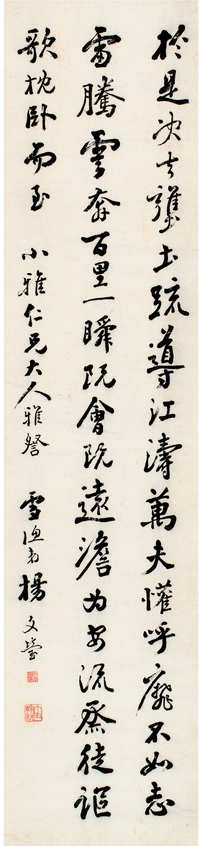 於是决去壅土疏導江濤萬夫懽呼靡不如志
雷騰雲奔百里一瞬既會既遠澹為安流烝徒謳
歌枕卧而至 小雅仁兄大人雅詧 雪漁弟楊文瑩